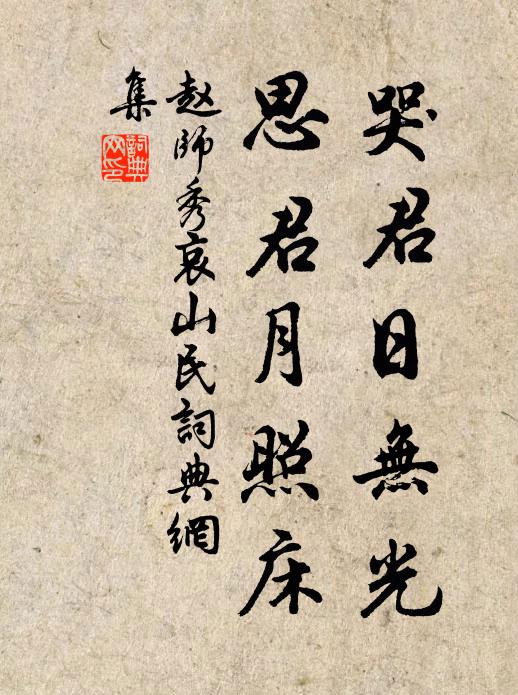 哭君日無光
思君月照床
赵師秀哀山民詞典網
集
詞典
网印